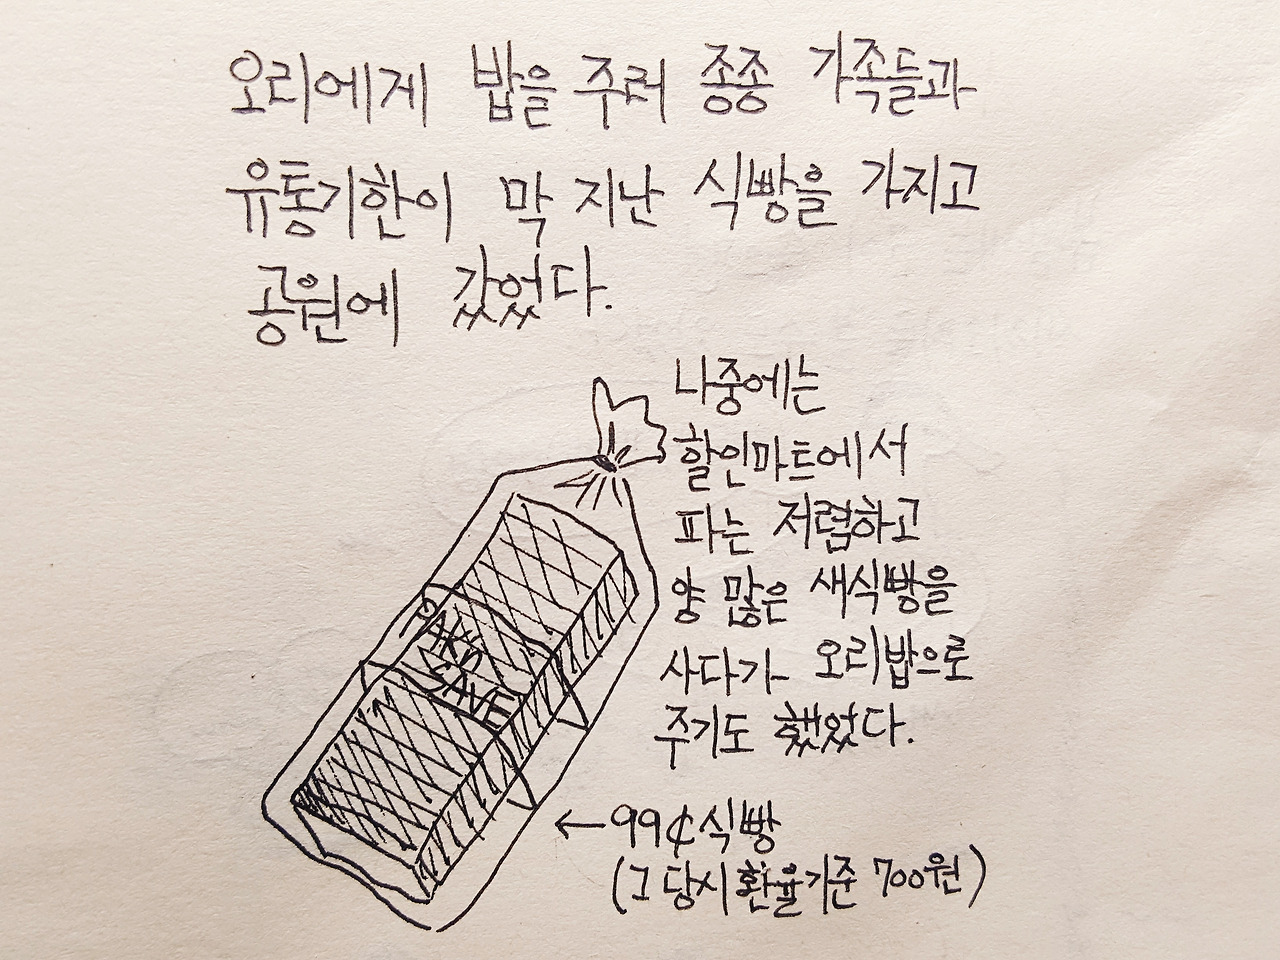 오리에게 밥을 주러 종종 가족들과
유통기한이 막 지난 식빵을 가지고
공원에 갔었다.
나중에는
할인마트에서
파는 저렴하고
양 많은 새식빵을
사다가 오리밥으로
주기도 했었다.
PAKn
SAVE
←99¢식빵
(그 당시 환율기준 700원)